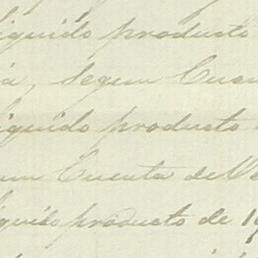 liquido producto
a, segun Cuen
liquido producto
un Cuenta de Ve
iquido producto de 19